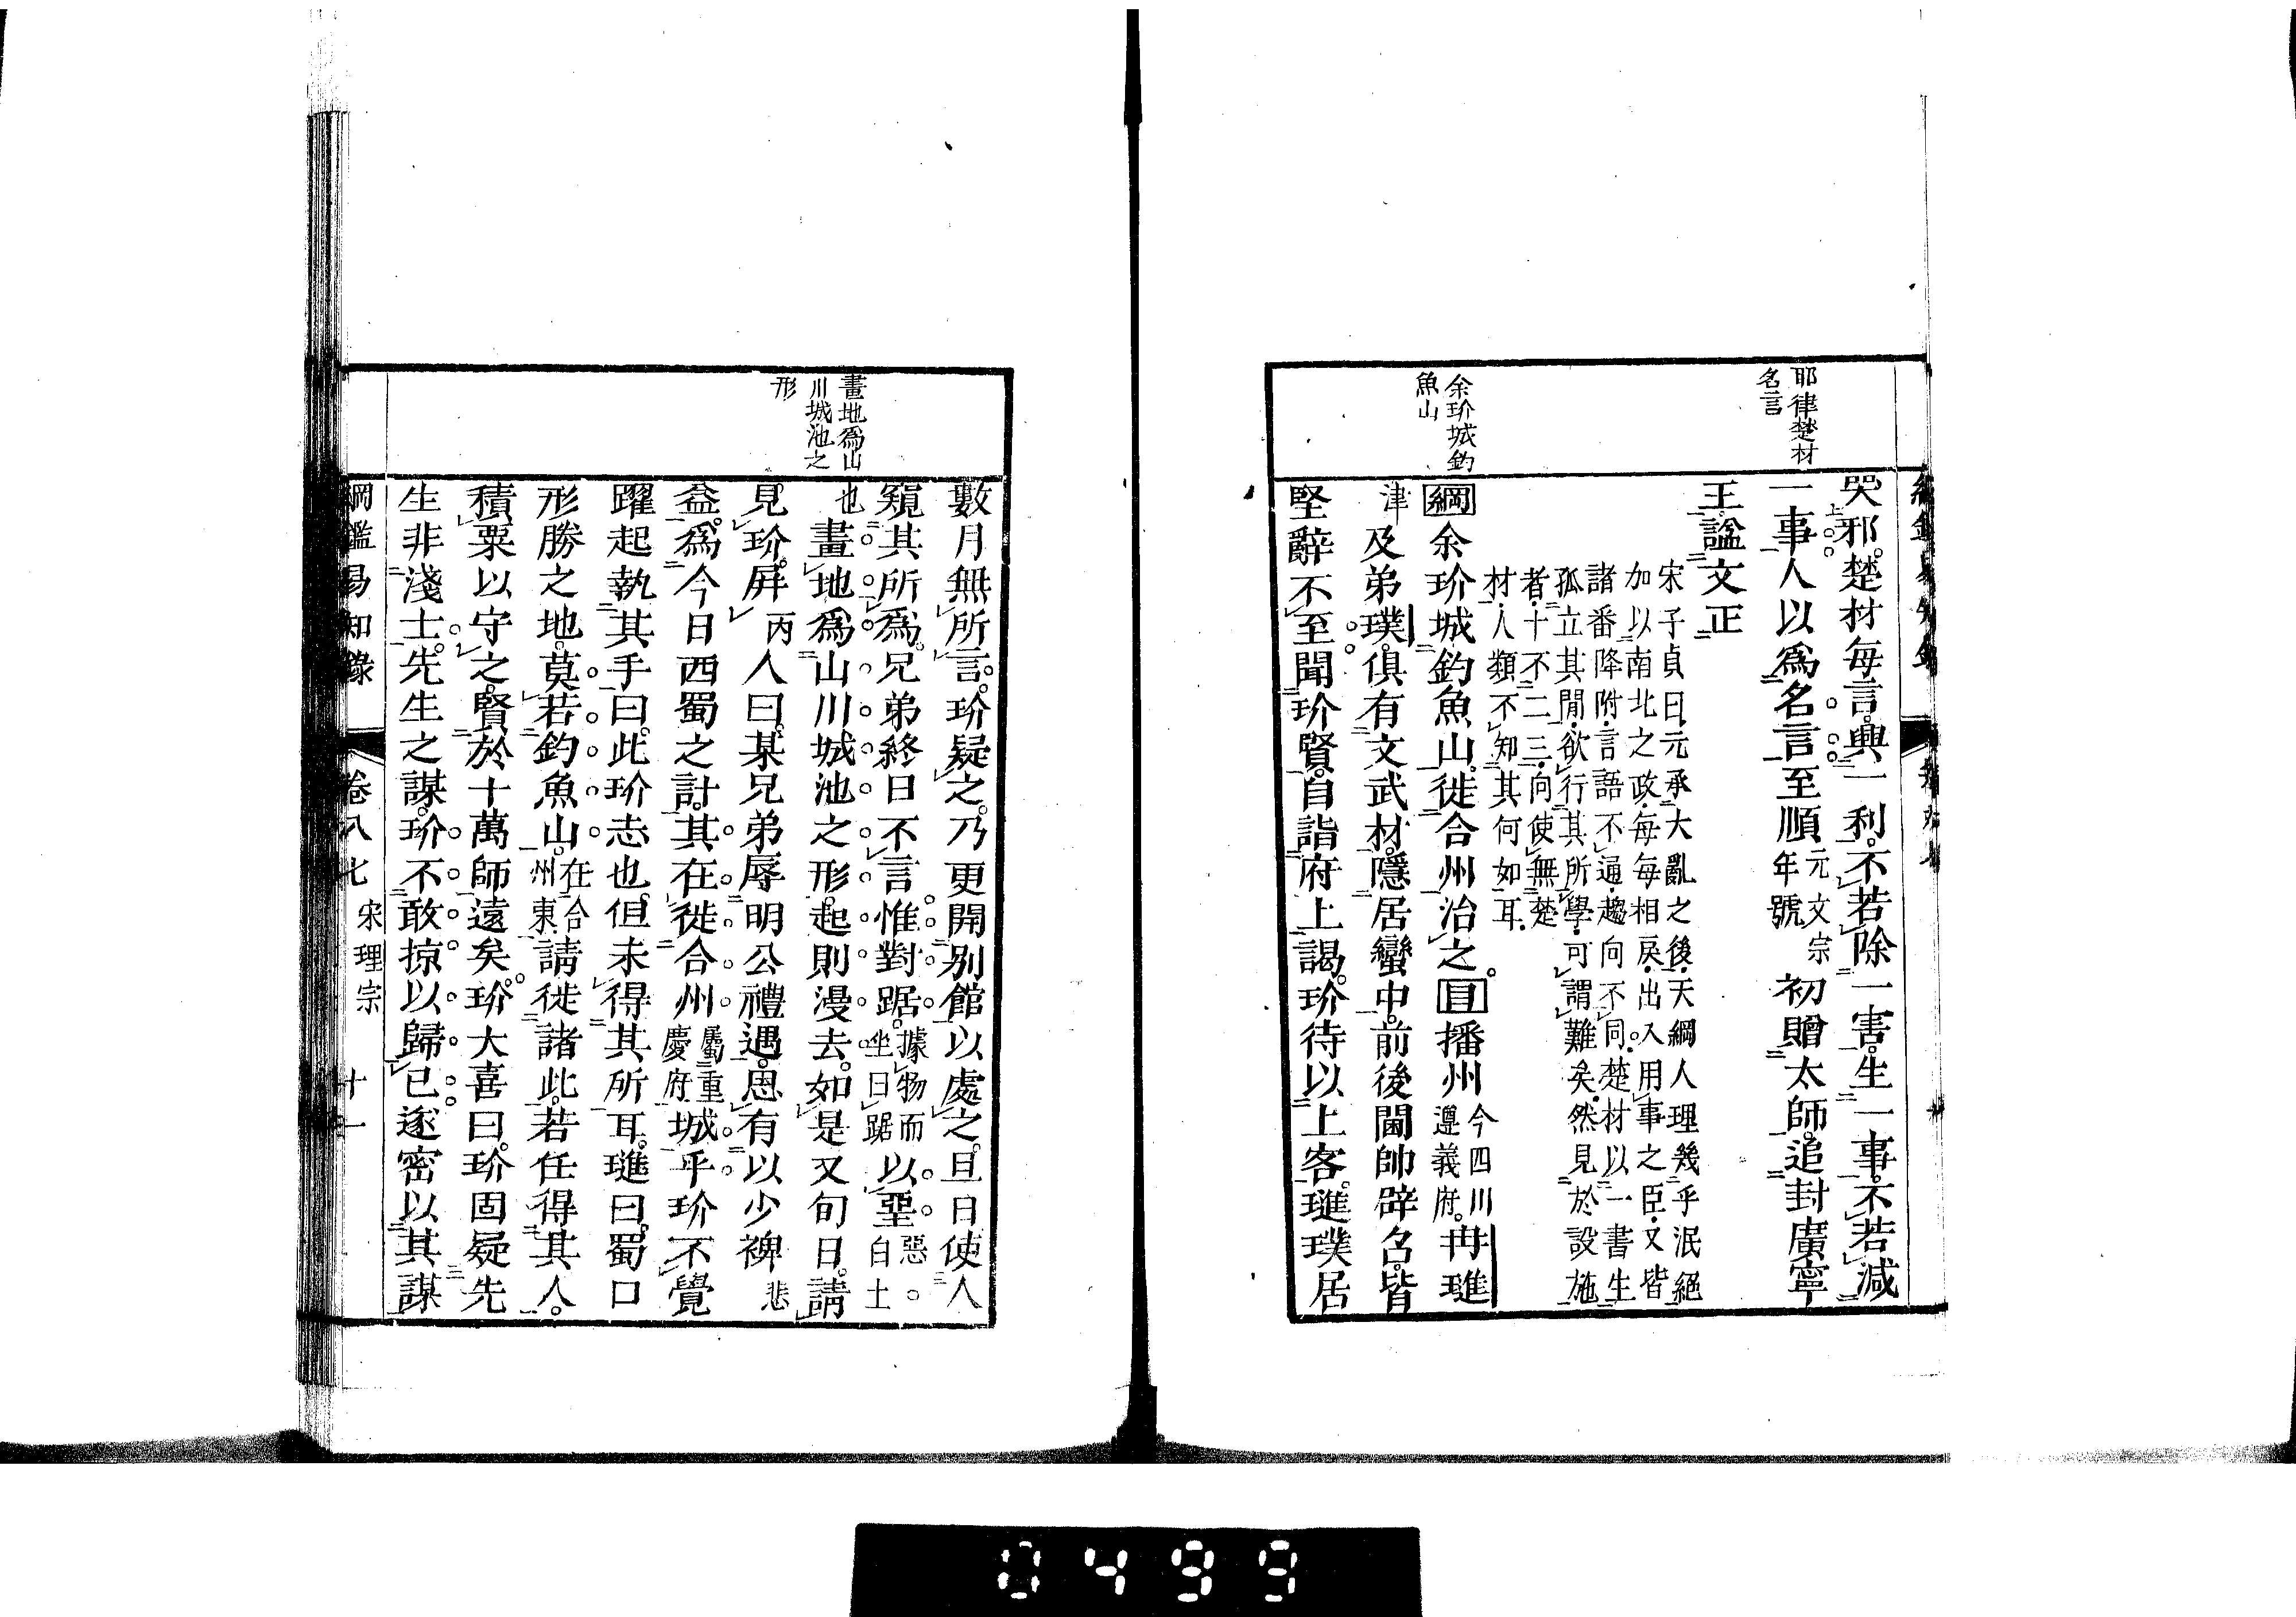 耶律楚材
名言
余玠城釣
魚山
哭邪。楚材每言。興一利。不若除一害。生一事。不若減
一事。人以爲名言。至順元文宗年號初贈太師。追封廣寧
王。諡文正
宋子貞曰元承大亂之後天綱人理幾乎泯絕
加以南北之政每每相戾出入用事之臣又皆
諸番降附言語不通趨向不同楚材以一書生
孤立其閒欲行其所學可謂難矣然見於設施
者十不二三向使無楚
材人類不知其何如耳
綱余玠城釣魚山。徙合州治之。目播州今四川遵義府。冉璡
津及弟璞。俱有文武材。隱居蠻中。前後閫帥辟召。皆
堅辭不至。聞玠賢。自詣府上謁。玠待以上客。璡璞居
畫地爲山
川城池之
形
數月無所言。玠疑之。乃更開別館以處之。旦日使人
窺其所爲。兄弟終日不言惟對踞。據物而坐曰踞以堊惡。白土
也畫地爲山川城池之形。起則漫去。如是又旬日。請
見玠。屏丙人曰。某兄弟辱明公禮遇。思有以少裨悲
益。爲今日西蜀之計。其在徙合州屬重慶府城乎玠不覺
躍起執其手曰。此玠志也。但未得其所耳。璡曰。蜀口
形勝之地。莫若釣魚山。在合州東。請徙諸此。若任得其人。
積粟以守之。賢於十萬師遠矣。玠大喜曰。玠固疑先
生非淺士。先生之謀。玠不敢掠以歸已。遂密以其謀
綱鑑易知錄 卷八七 宋理宗 十一
0499